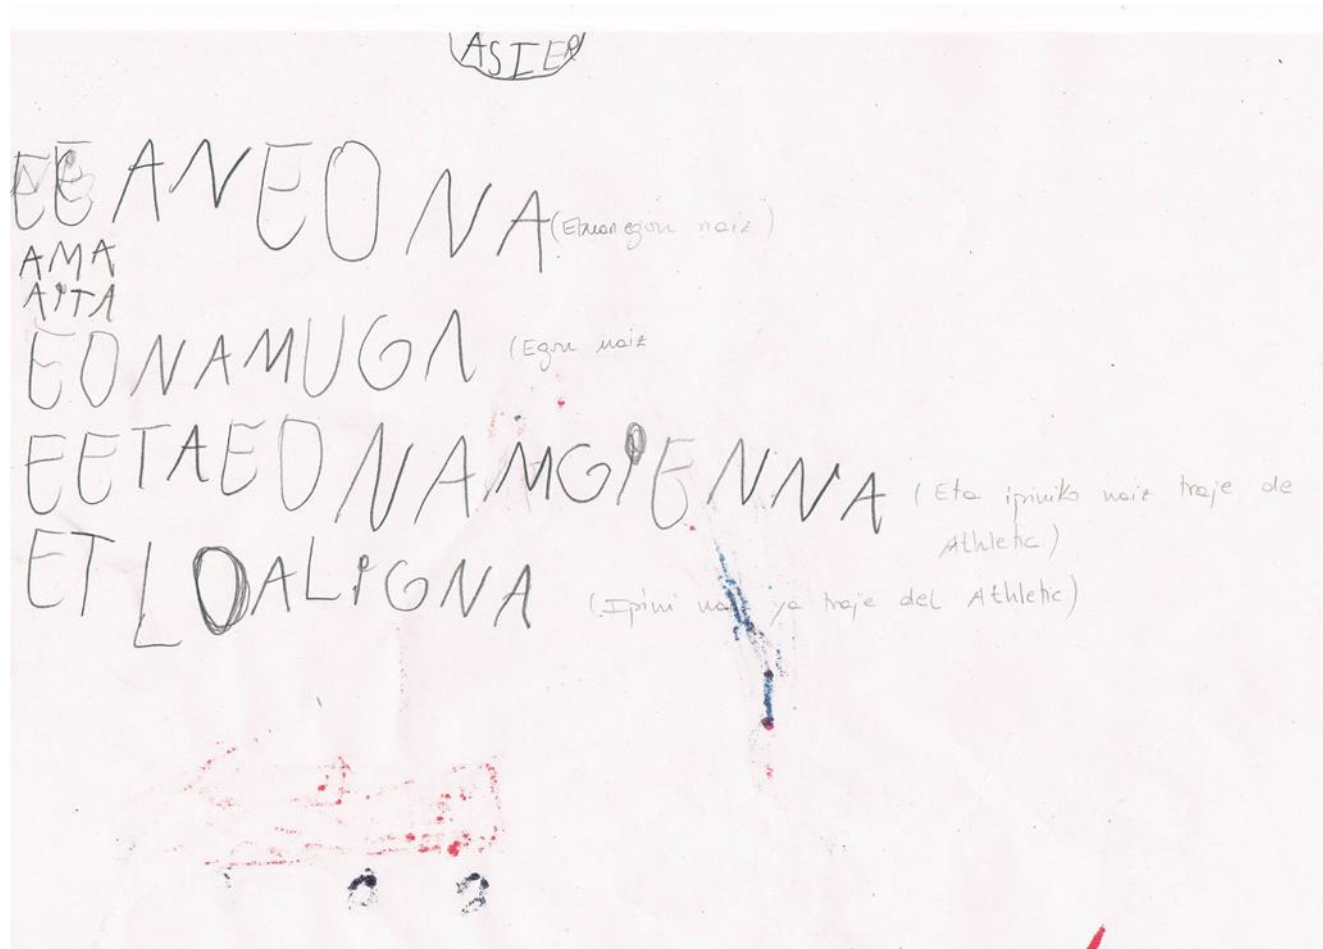 ASIER
EEANEONA (Etxean egon naiz)
AMA
AITA
EONAMUGA (Egon naiz
EETAEONAMGIENNA (Eta ipiniko naiz traje de
Athletic)
ETLOALIGNA (Ipini naiz ya traje del Athletic)